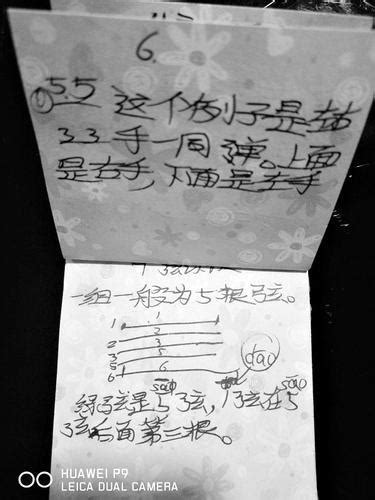 6.
① 5.5 这个例子是左右
3.3 手一同弹。上面
是右手，下面是左手
一组一般为5根弦。
1 1
2 2
3 3
5 5
6 6
dao
sao
sao
绿弦是5弦，1弦在5
弦后面第三根。
HUAWEI P9
LEICA DUAL CAMERA